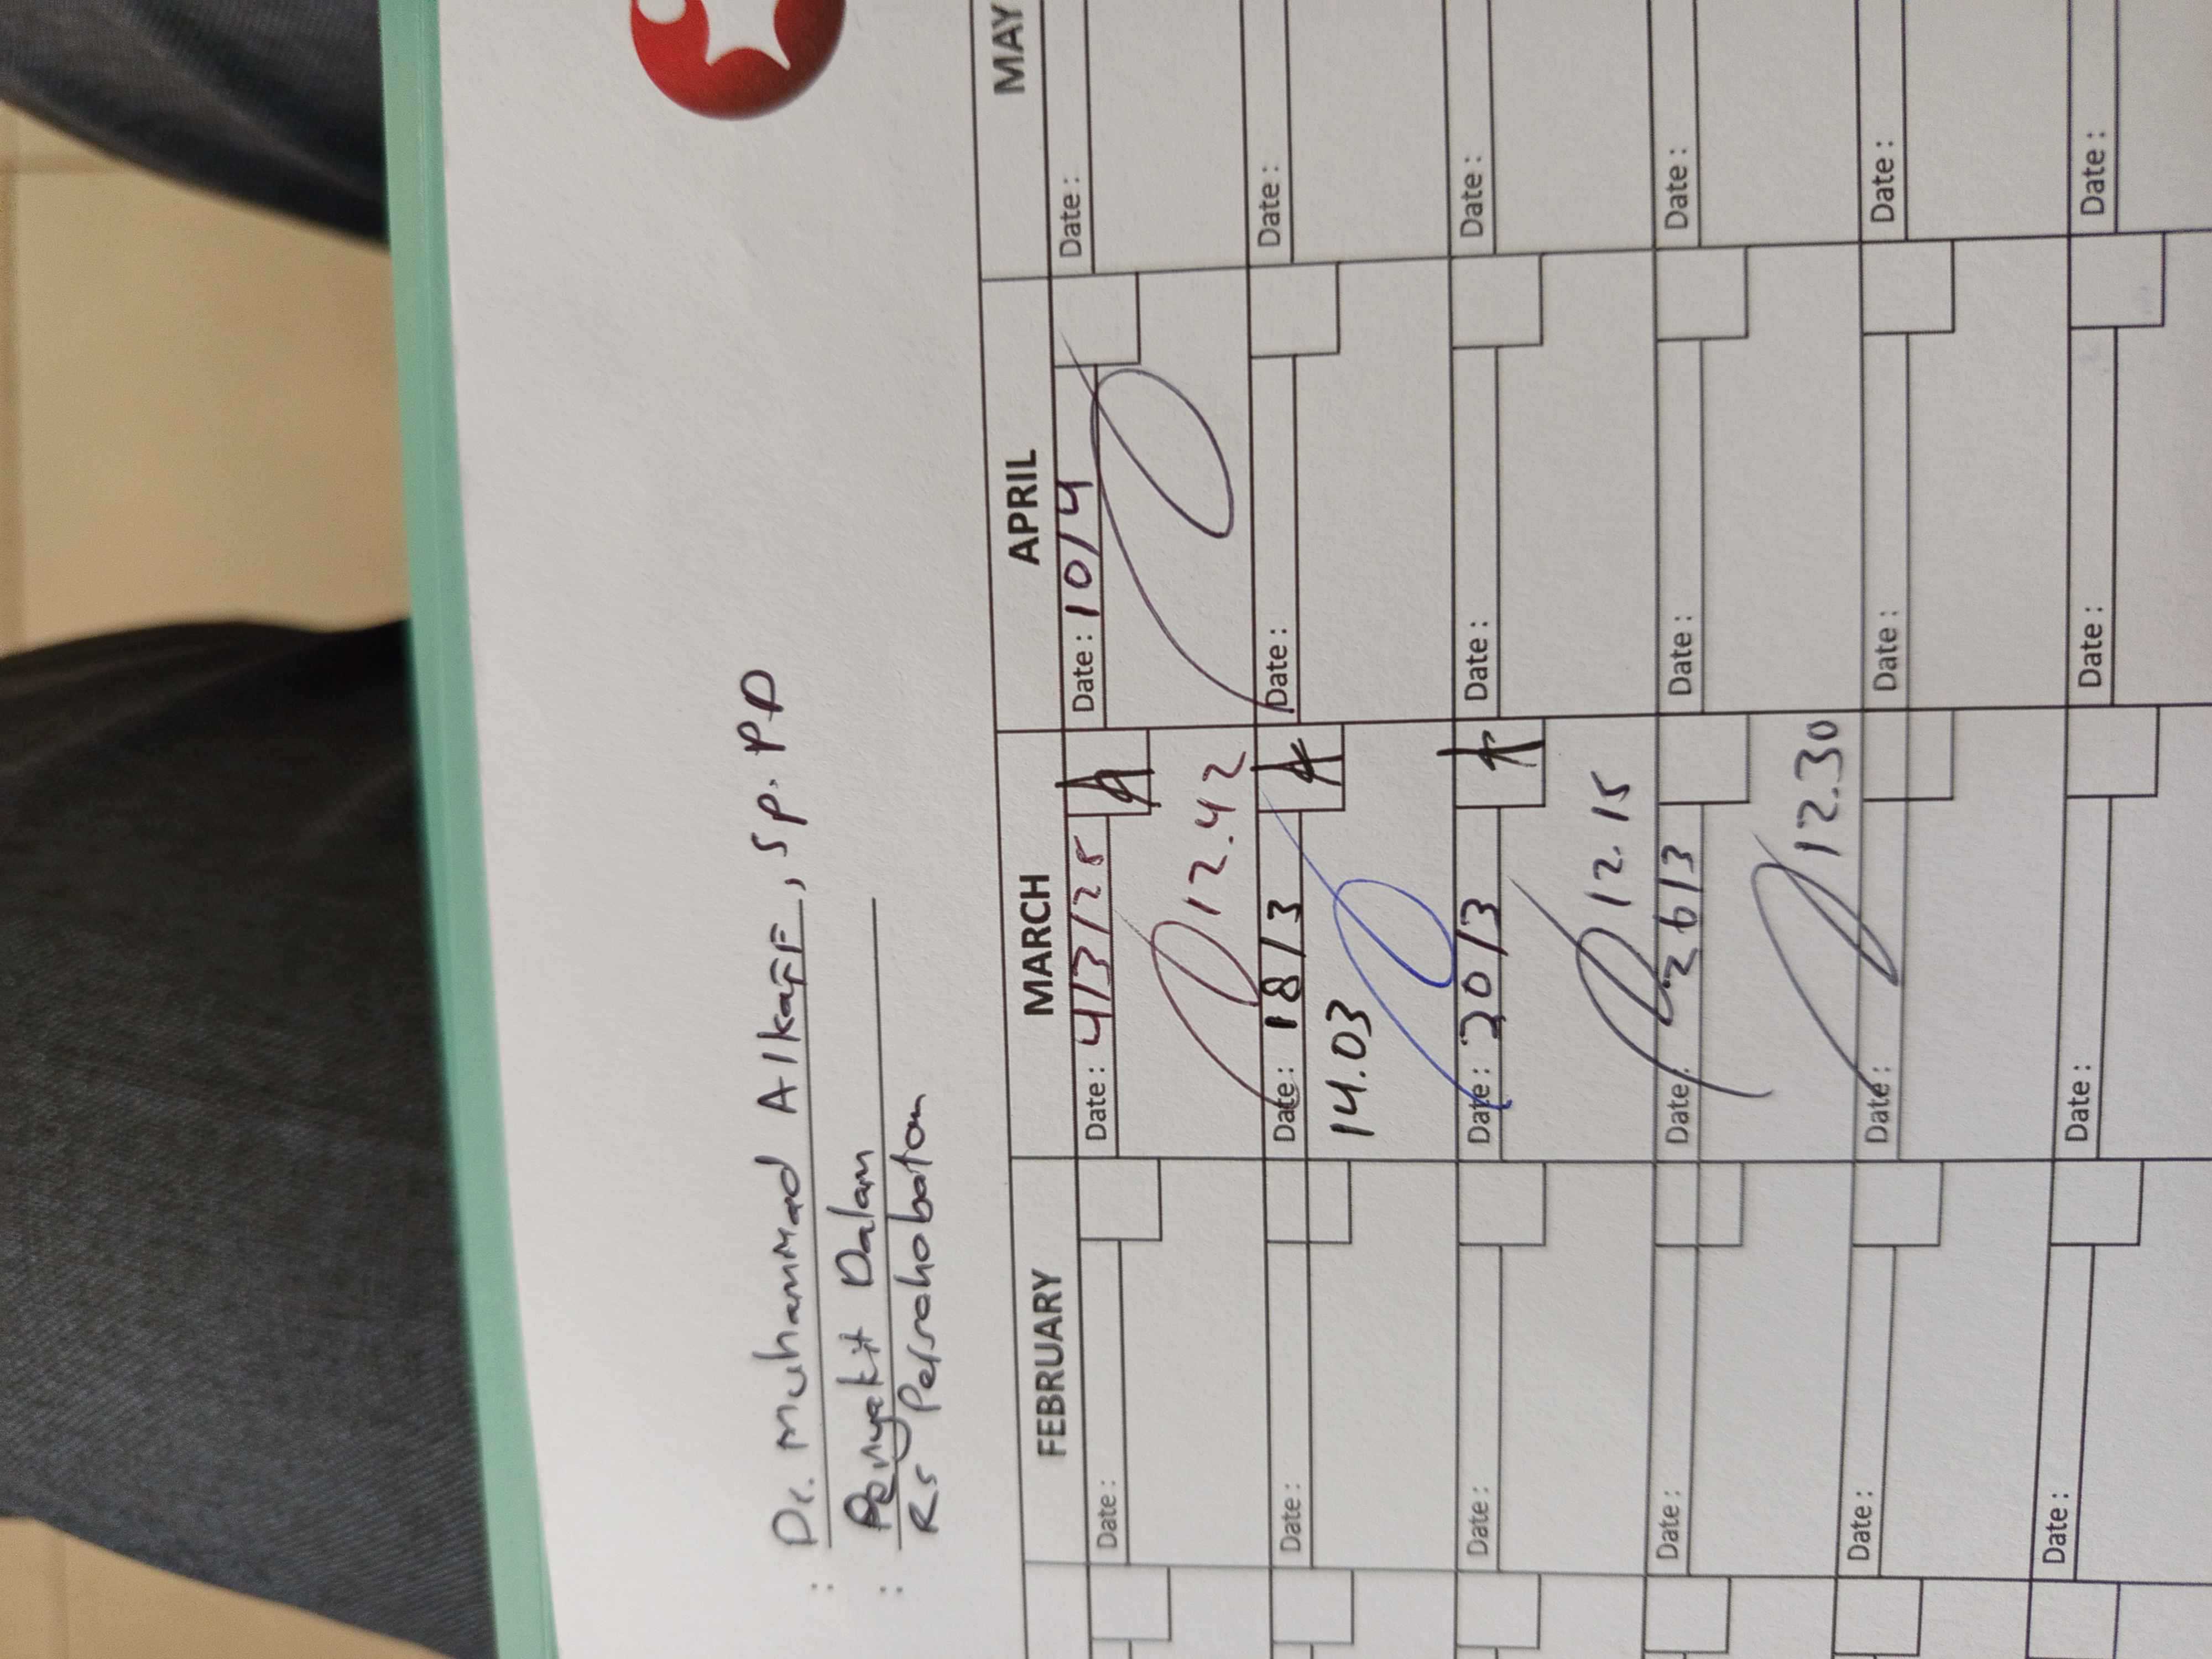 : Dr. Muhammad Alkaff, Sp. PD
: Penyakit Dalam
RS Persahabatan
FEBRUARY MARCH APRIL MAY
Date : Date : 4/3/25 Date : 10/4 Date :
12.42
Date : Date : 18/3 Date : Date :
14.03
Date : Date : 20/3 Date : Date :
12.15
Date : Date : 26/3 Date : Date :
12.30
Date : Date : Date : Date :
Date : Date : Date : Date :